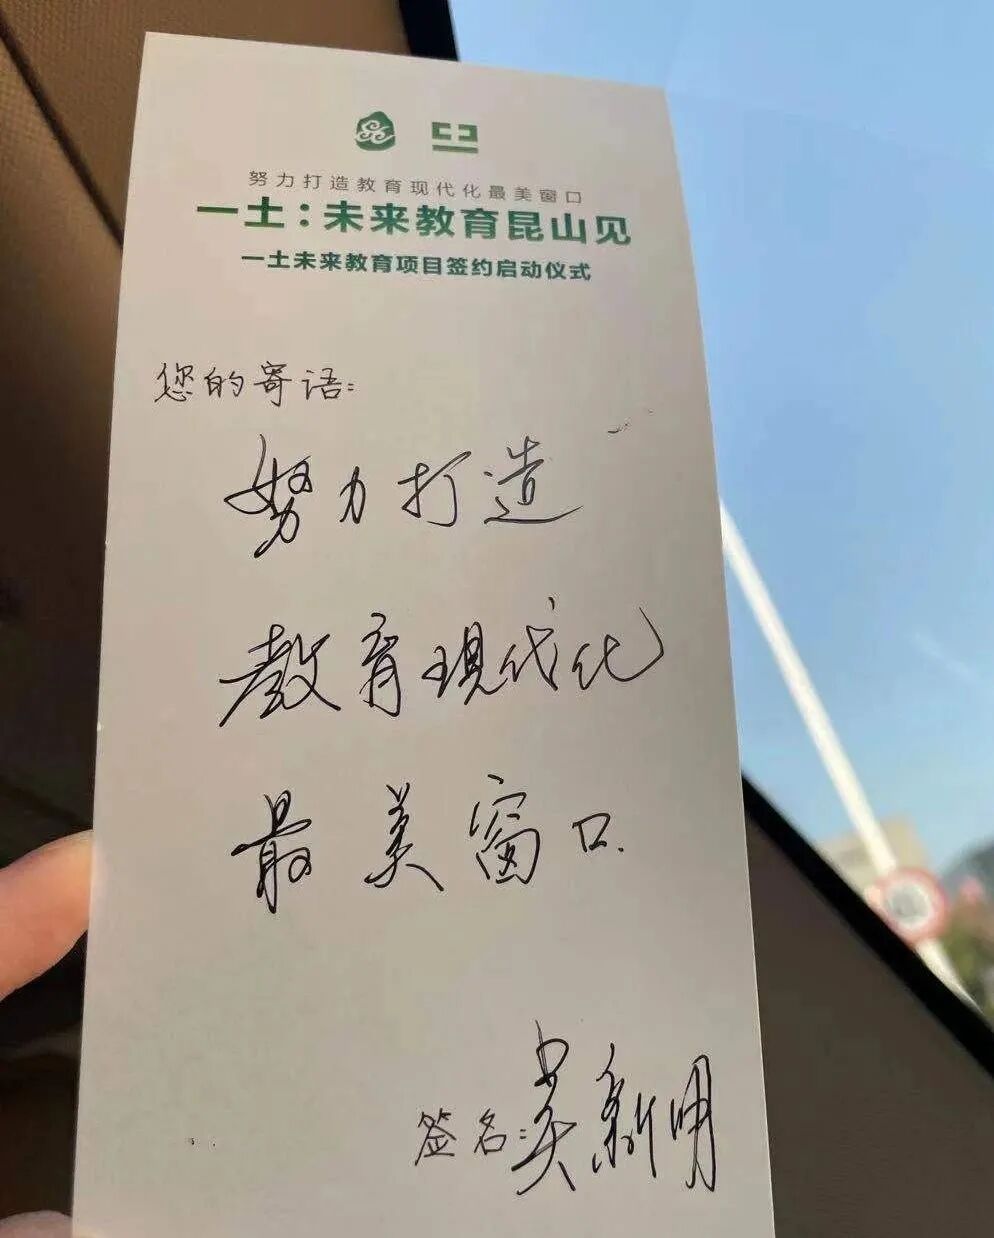 努力打造教育现代化最美窗口
一土：未来教育昆山见
一土未来教育项目签约启动仪式
您的寄语：
努力打造
教育现代化
最美窗口.
签名：吴新明